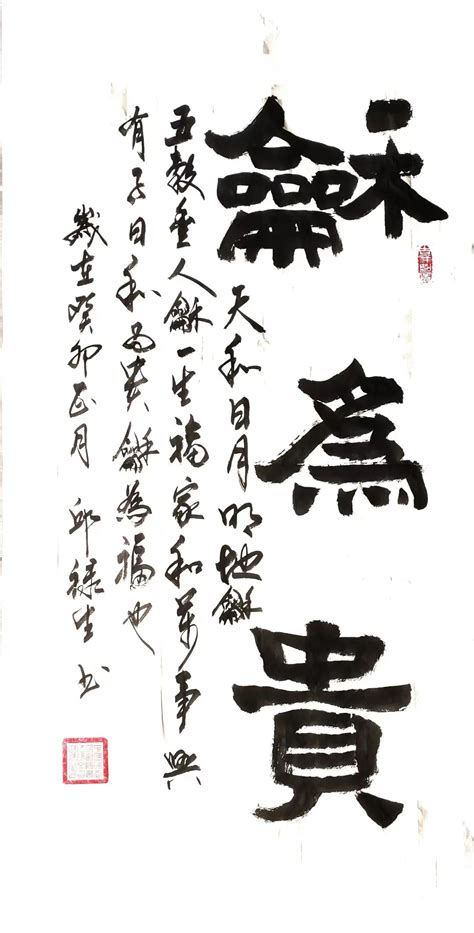 龢為貴
天和日月明地龢
五穀垂人龢一生福家和萬事興
有子曰和為貴龢為福也
歲在癸卯正月 邱祿生书